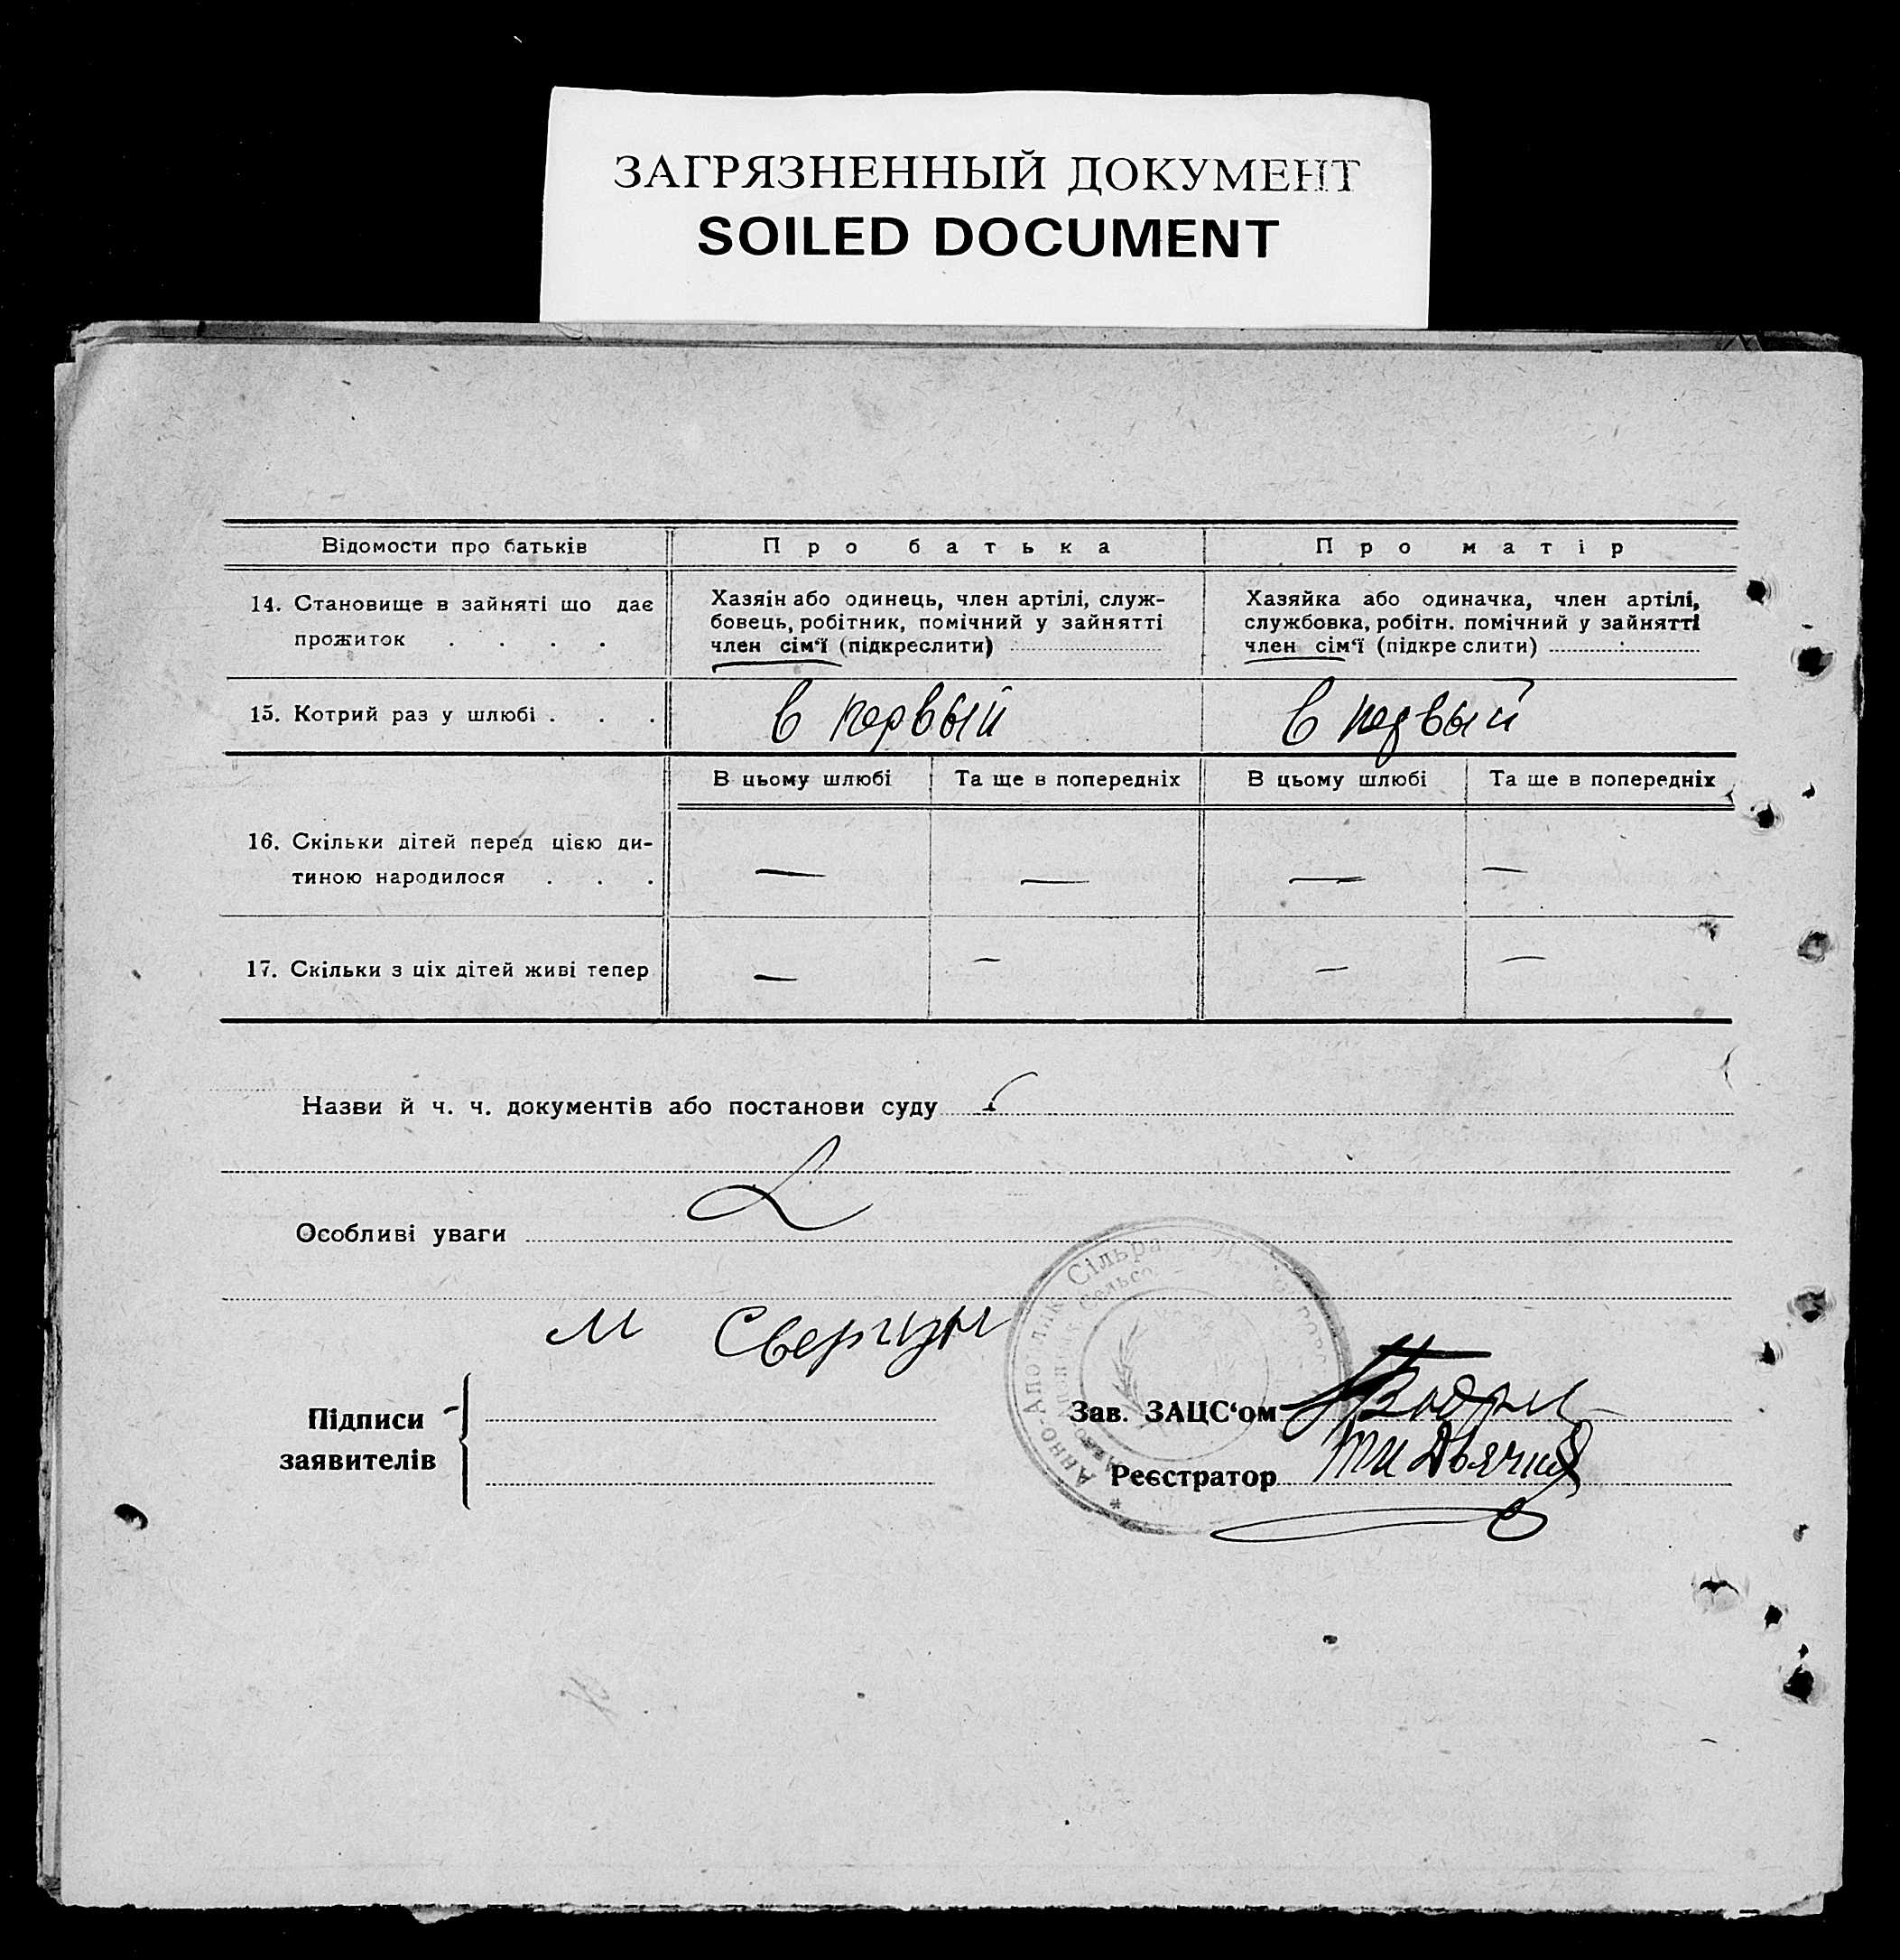 ЗАГРЯЗНЕННЫЙ ДОКУМЕНТ
SOILED DOCUMENT
Відомости про батьків
Про батька
Про матір
14. Становище в зайняті що дає
прожиток . . . .
Хазяін або одинець, член артілі, служ-
бовець, робітник, помічний у зайнятті
член сім'ї (підкреслити)
Хазяйка або одиначка, член артілі,
службовка, робітн. помічний у зайнятті
член сім'ї (підкреслити)
15. Котрий раз у шлюбі . . .
в первый
в первый
В цьому шлюбі
Та ще в попередніх
В цьому шлюбі
Та ще в попередніх
16. Скільки дітей перед цією ди-
тиною народилося . . .
— — — —
17. Скільки з ціх дітей живі тепер
— — — —
Назви й ч. ч. документів або постанови суду
Особливі уваги
Анно-Аполлик Сільра
Сельсо
м
Підписи
заявителів
Зав. ЗАЦС'ом
Реєстратор